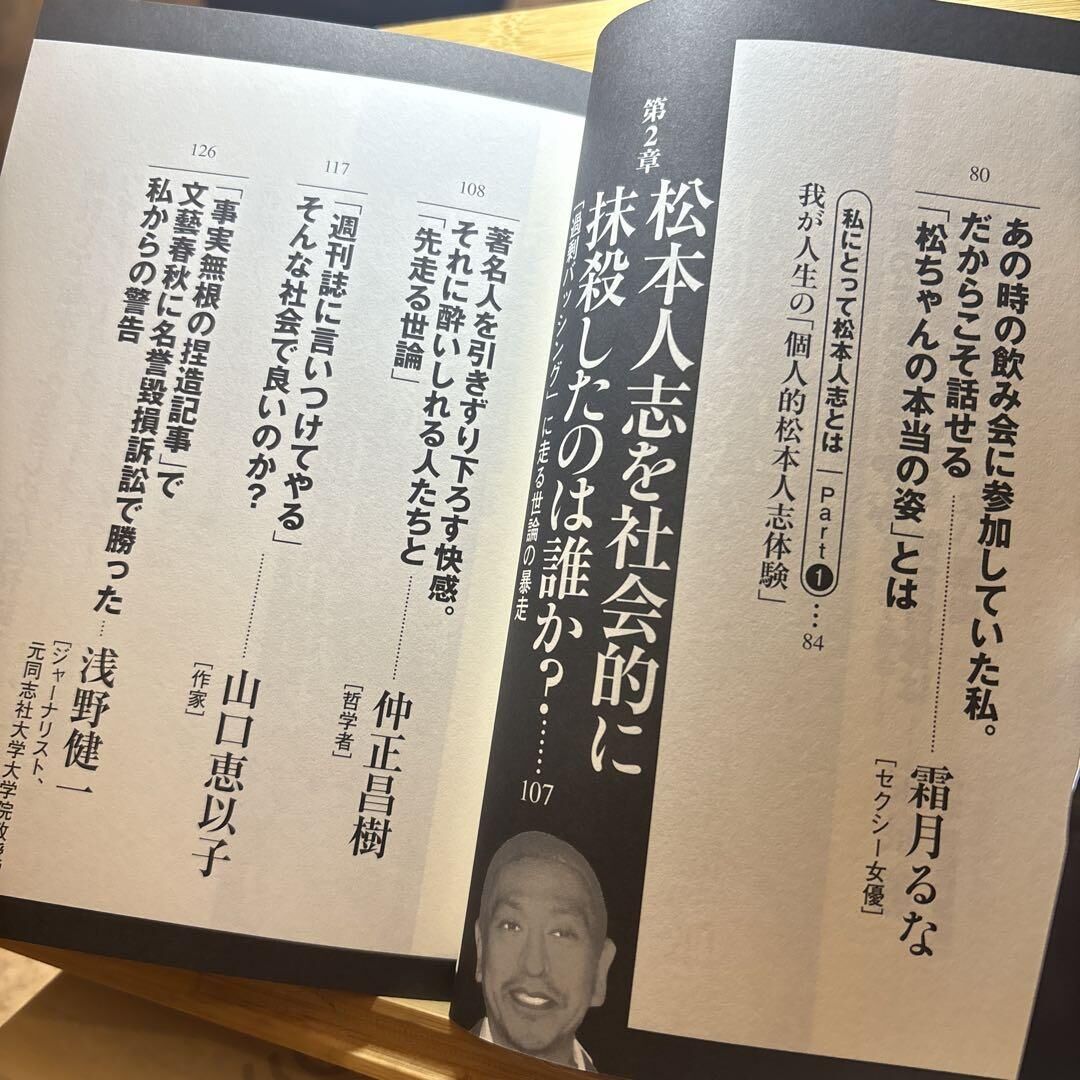 80
あの時の飲み会に参加していた私。
だからこそ話せる
「松ちゃんの本当の姿」とは
霜月るな
[セクシー女優]
私にとって松本人志とは Part❶
我が人生の「個人的松本人志体験」
…84
第2章
松本人志を社会的に
抹殺したのは誰か?……107
「過剰バッシング」に走る世論の暴走
108
著名人を引きずり下ろす快感。
それに酔いしれる人たちと
「先走る世論」
仲正昌樹
[哲学者]
117
「週刊誌に言いつけてやる」
そんな社会で良いのか?
山口恵以子
[作家]
126
「事実無根の捏造記事」で
文藝春秋に名誉毀損訴訟で勝った
私からの警告
浅野健一
[ジャーナリスト、
元同志社大学大学院教授